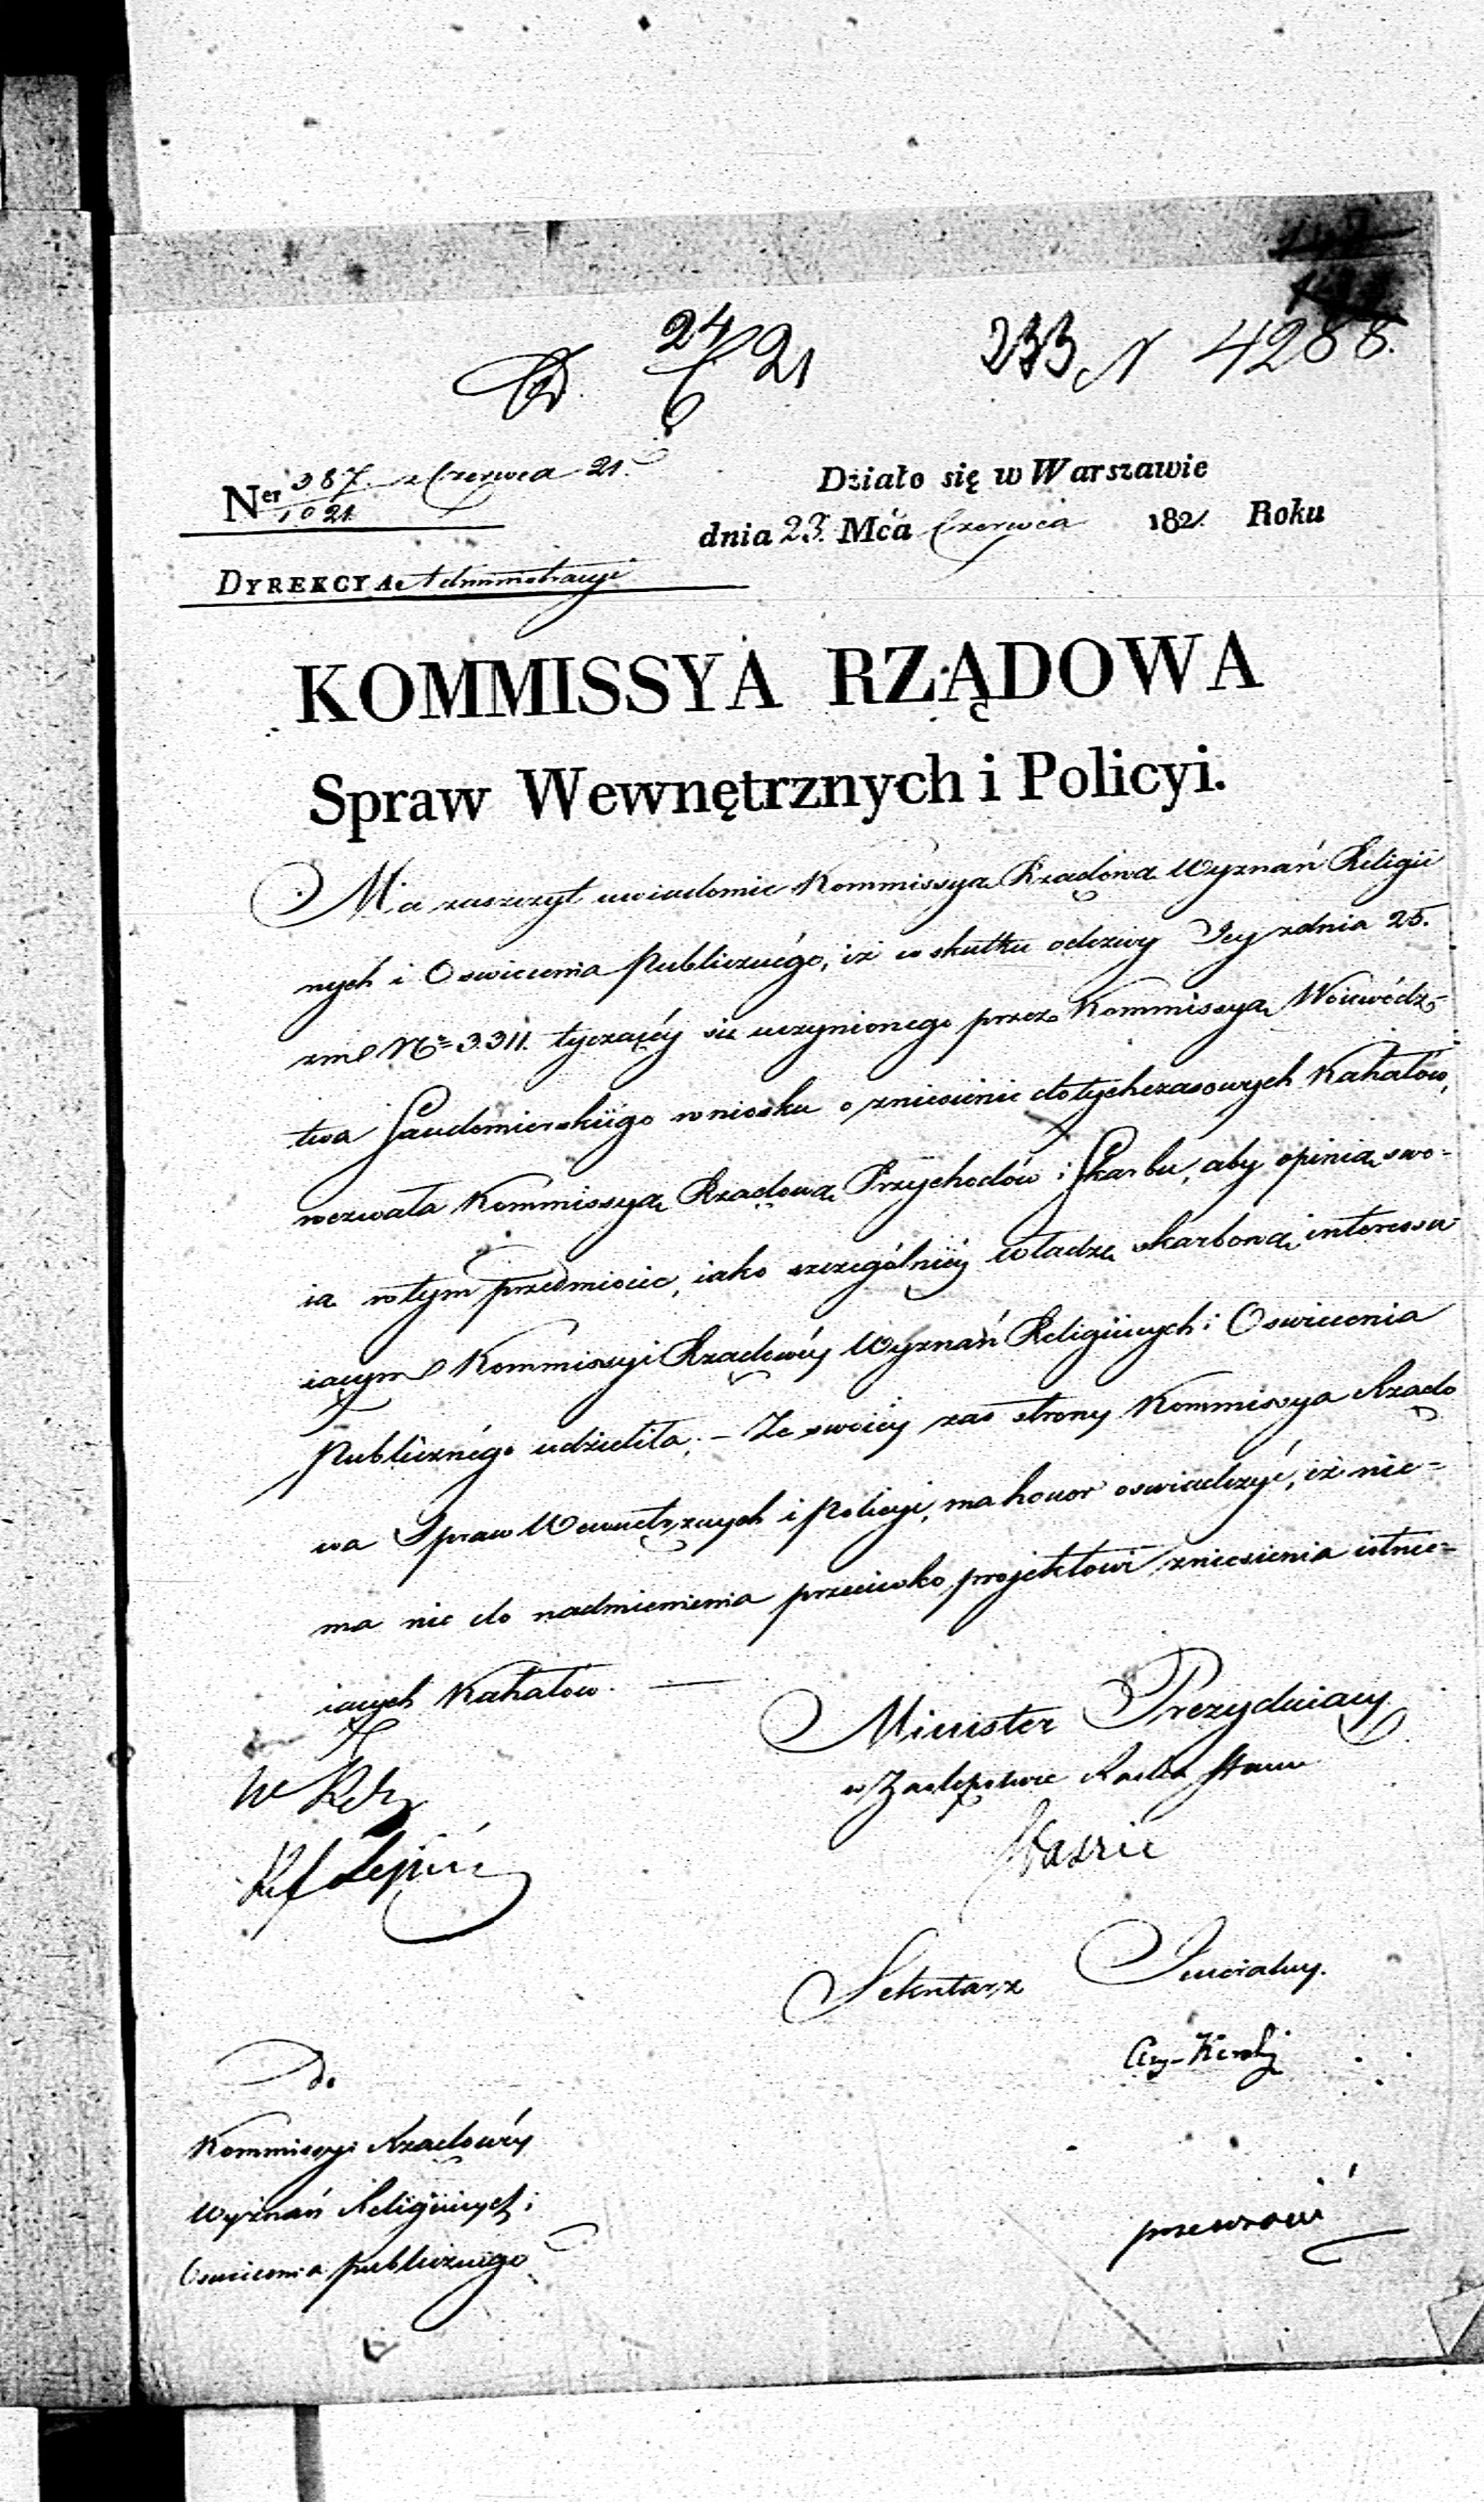 24/6 21
233 N 4288.
Ner 387. z Czerwca 21.
1021.
Działo się w Warszawie
dnia 23. Mca Czerwca 1821. Roku
DYREKCYA Administracyi
KOMMISSYA RZĄDOWA
Spraw Wewnętrznych i Policyi.
Ma zaszczyt uwiadomic Kommissyą Rządową Wyznań Religii
nych i Oswiecenia Publicznégo, iż w skutku odezwy Jey z dnia 25.
zm. No 3.311. tyczącéy się uczynionego przez Kommissyą Woiewódz-
twa Sandomierskiego wniosku o zniesienie dotychczasowych Kahałów,
wezwała Kommissyą Rządową Przychodów i Skarbu, aby opinią swo-
ią w tym przedmiocie, iako szczególniéy władzę skarbową interessu
iącym Kommissyi Rządowéy Wyznań Religiinych i Oswiecenia
Publicznégo udzieliła. – Ze swoiéy zas strony Kommissya Rządo
wa Spraw Wewnętrznych i Policyi, ma honor oswiadczyć, iż nie-
ma nic do nadmienienia przeciwko projektowi zniesienia istnie-
iących Kahałów. —
Minister Prezyduiący
w Zastępstwie Radca Stanu
Sekretarz Jeneralny.
Do
Kommissyi Rządowéy
Wyznań Religiinych i
Oswiecenia publicznego